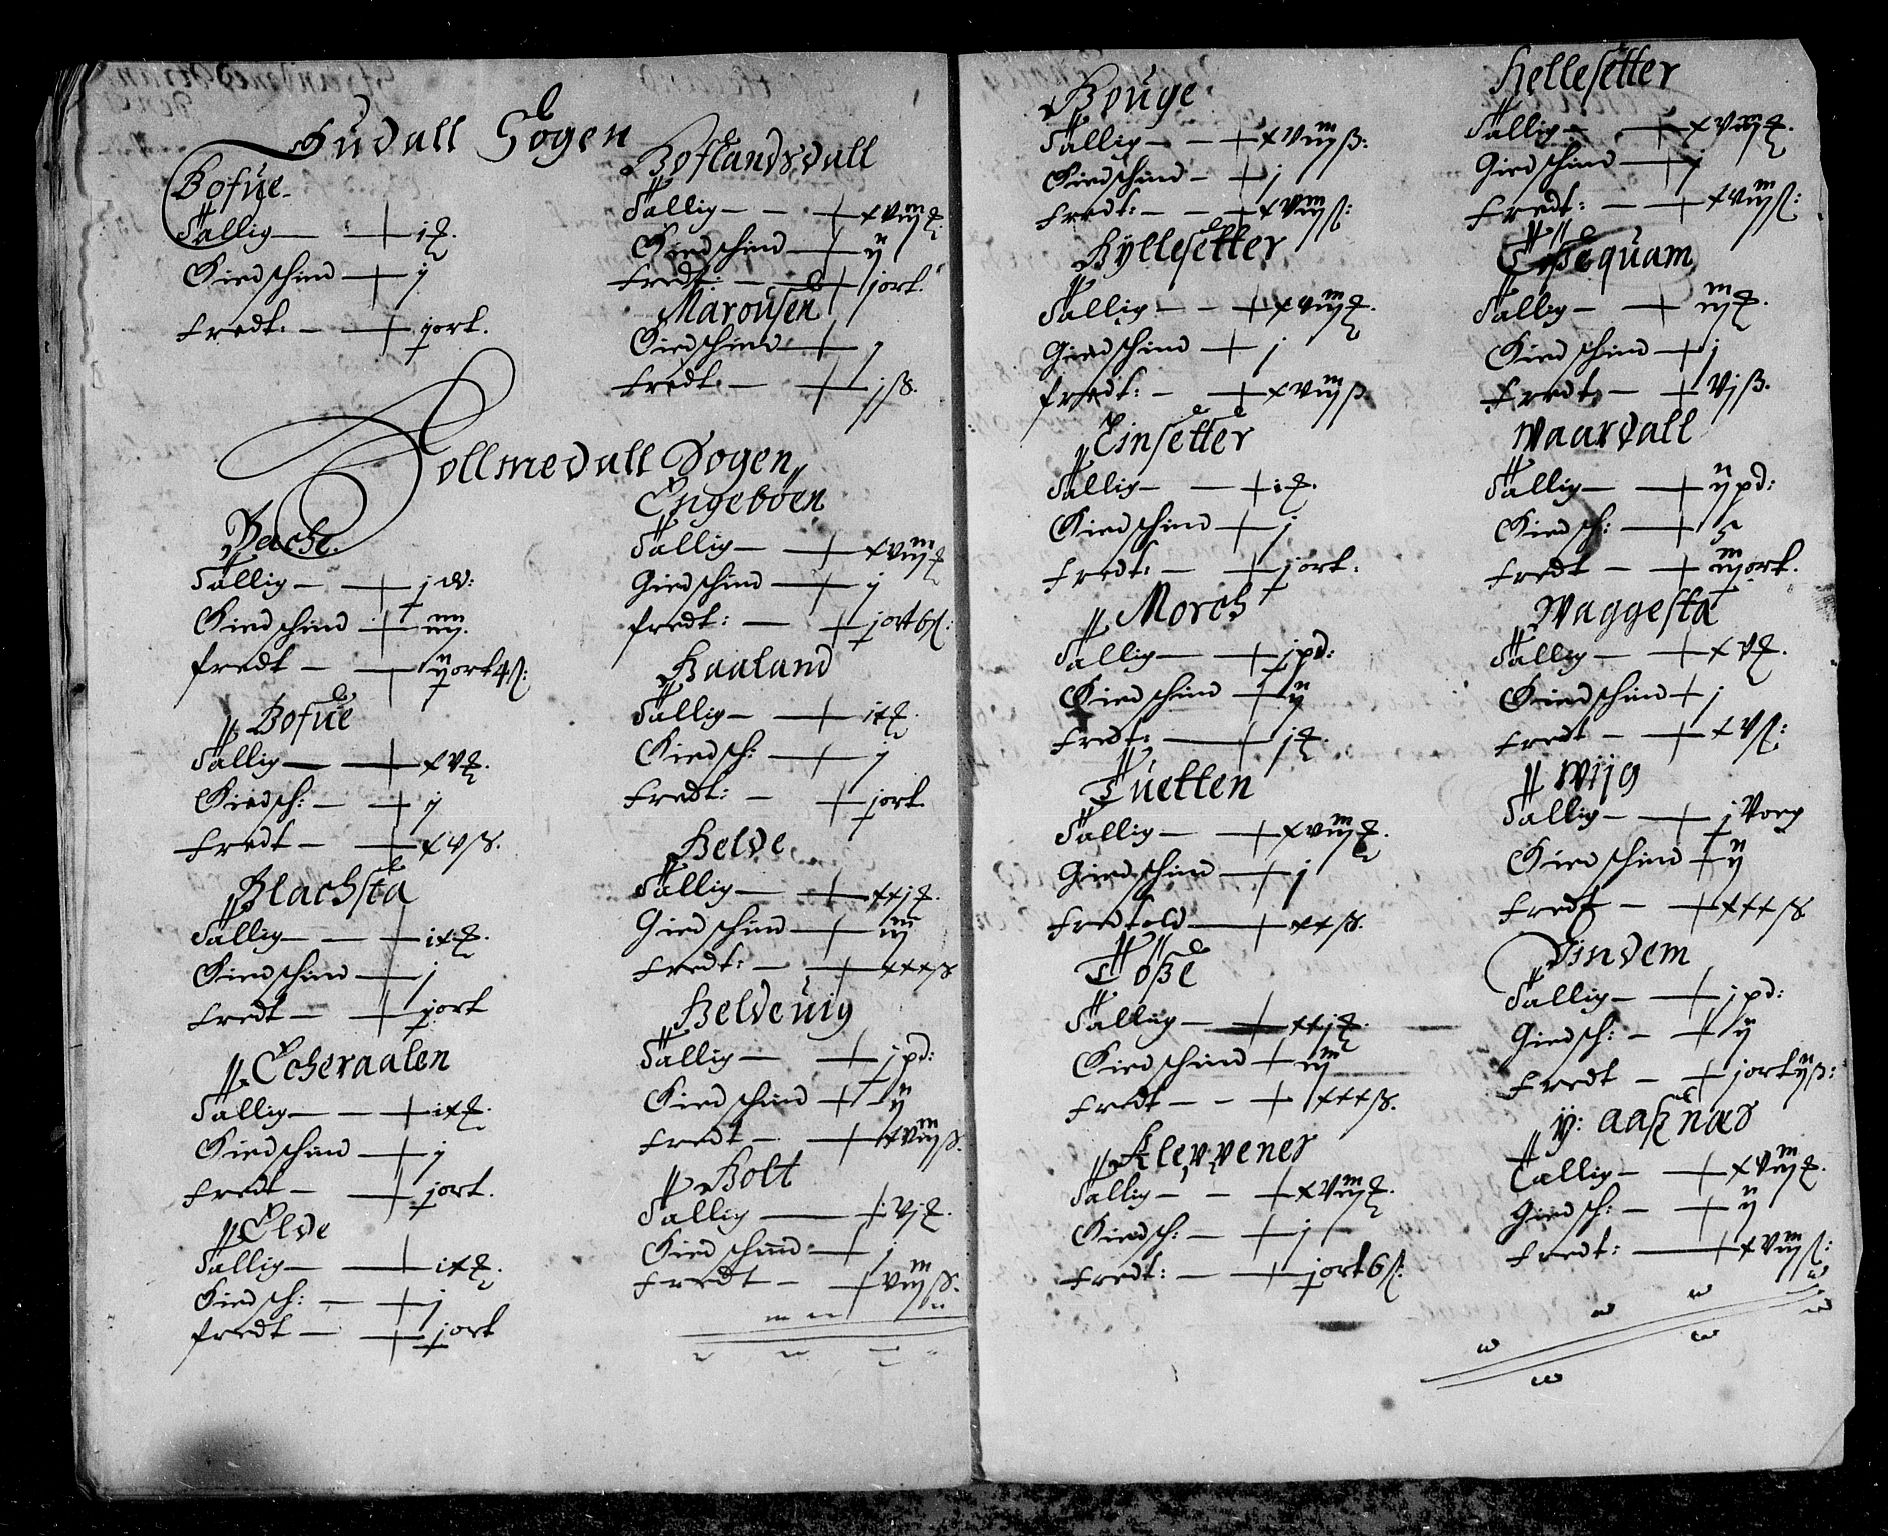 Judall Sogen
Bofue
Tallig — + i ℔.
Giedschind — + j
Fredt: — + jort.
Boslandsdall
Tallig — — + xviij ℔
Giedschind — + ij
Fredt: — + jort.
Marousen
Giedschind — + j
Fredt — + jß.
Hollmedall Sogen
Bache.
Tallig — + j
Giedschind + iiij.
Fredt — + ijort 4ß:
Bofue
Tallig — + xv ℔.
Giedsch: — + j
Fredt — + xvß.
Blachsta
Tallig — — + ix ℔.
Giedschind — + j
Fredt — + jort
Echeraalen
Tallig — — + ix ℔.
Giedschind — + j
Fredt — + jort.
Elde
Tallig — + ix ℔.
Giedsch: — + j
Fredt — + jort
Engebøen
Tallig — + xviij ℔
Giedschind — + j
Fredt: — + jort 6ß:
Haaland
Tallig — + ix ℔.
Giedsch: — + j
Fredt: — + jort
Helde
Tallig — + xxj ℔.
Giedschind — + iij
Fredt: — + xxxß
Heldeuig
Tallig — + jpd:
Giedschind + ij
Fredt — + xviijß.
Holt
Tallig — + vj ℔.
Giedschind — + j
Fredt — + viijß.
Houge
Tallig — — + xviijß:
Giedschind — + j
Fredt: — — + xviijß:
Hyllesetter
Tallig — — + xviij ℔.
Giedschind — + j
Fredt: — + xviijß
Einsetter
Tallig — — + i ℔.
Giedschind — + j
Fredt: — + jort.
Morch
Tallig — + jpd:
Giedschind + ij
Fredt: — + j ℔.
Tuetten
Tallig — + xviij ℔.
Giedschind — + j
Fredtold — + xxß.
Toße
Tallig — + xxj ℔.
Giedschind + iij
Fredt — — + xxxß.
Kleppenes
Tallig — — + xviij ℔.
Giedsch: — + j
Fredt: — + jort 6ß:
Hellesetter
Tallig — + xviij ℔.
Giedschind — + j
Fredt: — + xviijß:
Tallig — + iij ℔.
Giedschind + j
Fredt — + vjß.
Waardall
Tallig — + ijpd:
Giedsch: — + 5
Fredt — + iijort.
Waggesta
Tallig — + xv ℔.
Giedschind + j
Fredt — + xvß:
Wijg
Tallig — + j Vog
Giedschind + ij
Fredt — + xxxß
Vindem
Tallig — + jpd:
Giedsch: — + ij
Fredt — + jort ijß:
ÿ: aaßnæs
Tallig — + xviij ℔.
Giedsch: — + ij
Fredt: — + xviijß: